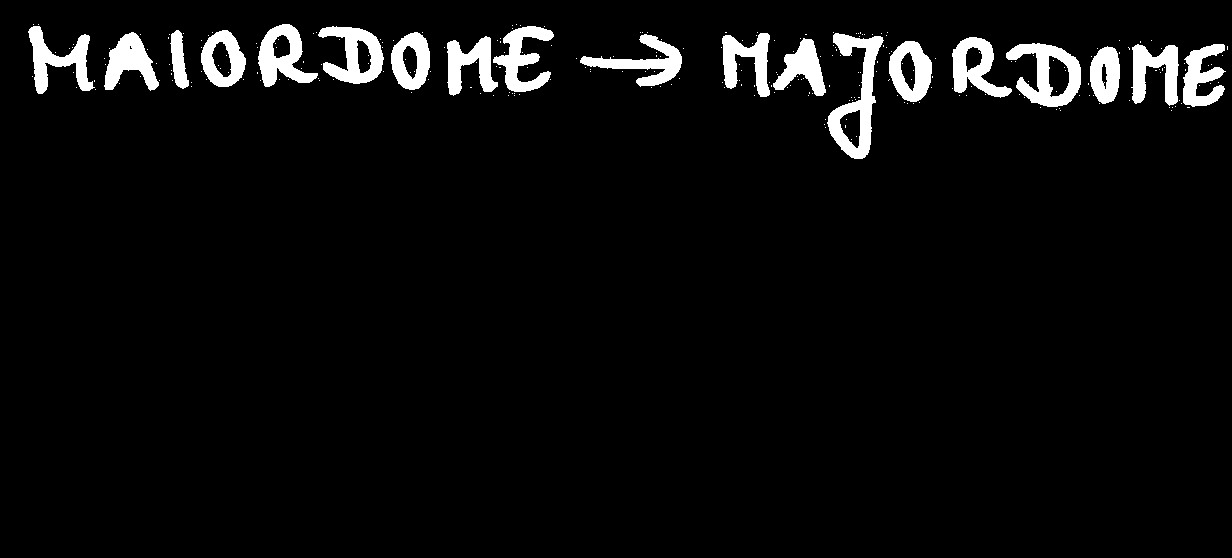 MAIORDOME → MAJORDOME